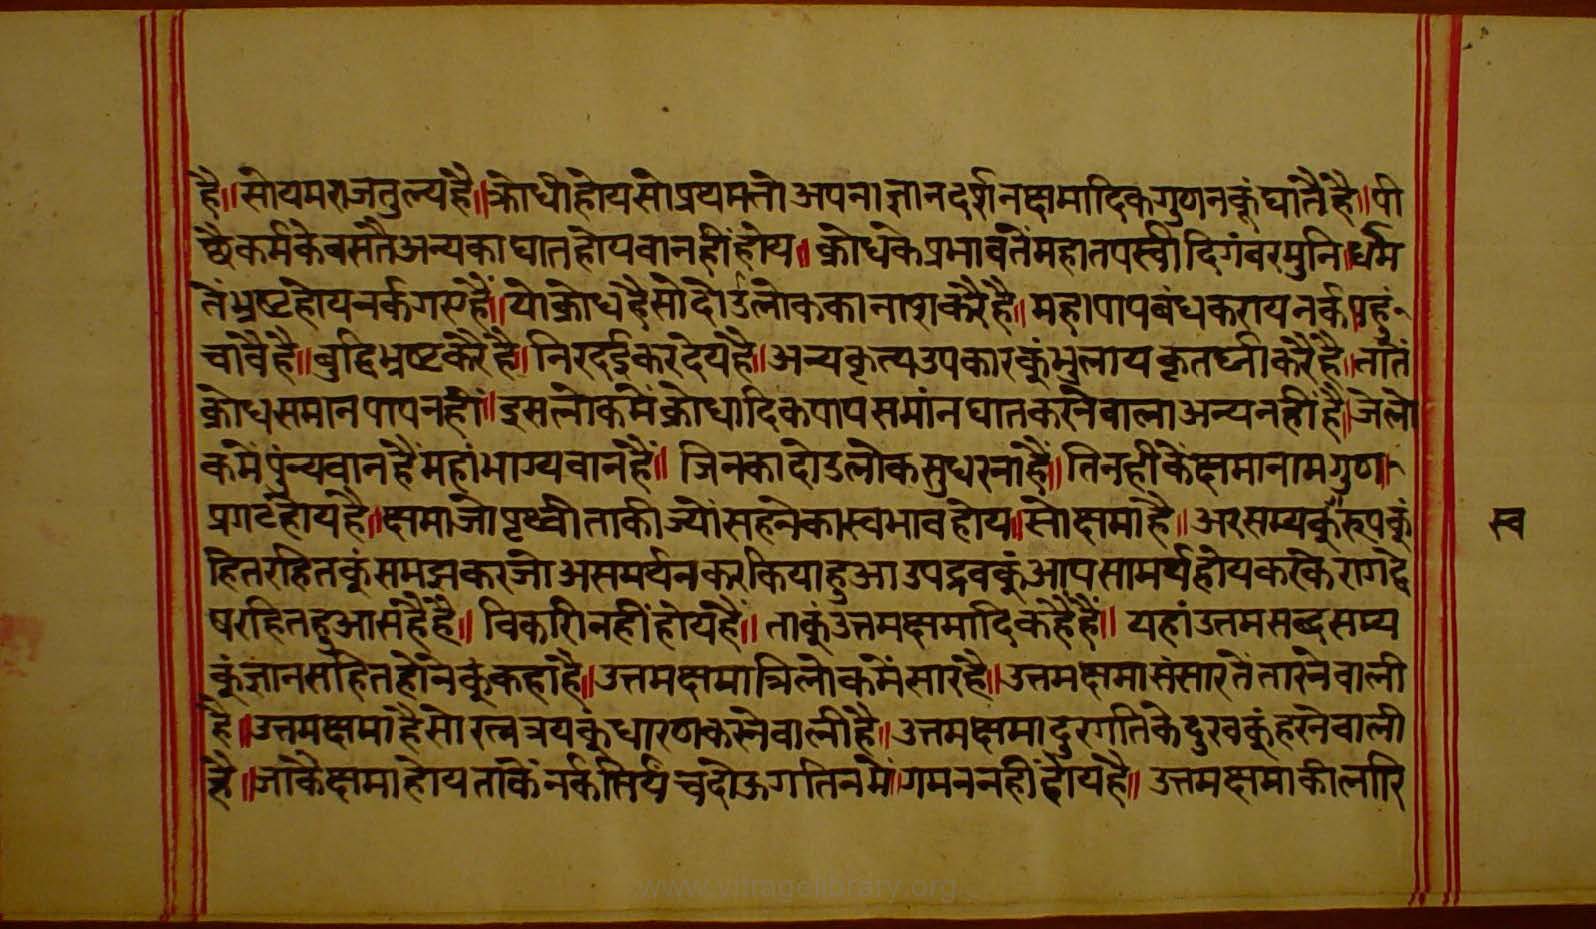 है॥ सोयमराजतुल्यहै॥ क्रोधीहोयसोप्रथमतोअपनाज्ञानदर्शनक्षमादिकगुणनकूंघातैहै॥ पी
छैकर्मकेवसतैअन्यकाघातहोयवानहींहोय॥ क्रोधकेप्रभावतेंमहातपस्वीदिगंबरमुनि॥ धर्म
तेंभ्रष्टहोयनर्कगएहैं॥ योक्रोधहैसोदोउलोककानाशकरैहै॥ महापापबंधकरायनर्कपहुं
चावैहै॥ बुद्धिभ्रष्टकरैहै॥ निरदईकरदेयहै॥ अन्यकृत्यउपकारकुंभुलायकृतघ्नीकरैहै॥ तातें
क्रोधसमानपापनहीं॥ इसलोकमेंक्रोधादिकपापसमांनघातकरनेवालाअन्यनहींहै॥ जेलो
कमेंपुंन्यवानहैंमहांभाग्यवानहैं॥ जिनकादोउलोकसुधरनाहैं॥ तिनहींकेंक्षमानामगुण
प्रगटहोयहै॥ क्षमाजोपृथ्वीताकीज्योंसहनेकास्वभावहोय॥ सोक्षमाहै॥ अरसम्यकूरुपकुं
हितरहितकूंसमझकरजोअसमर्थनकरकियाहुआउपद्रवकुंआपसामर्थहोयकरकेरागद्वे
षरहितहुआसहैहै॥ विकारीनहींहोयहै॥ ताकुंउत्तमक्षमादिकहैहैं॥ यहांउत्तमसब्दसम्य
कूंज्ञानसहितहोनेकुंकहाहै॥ उत्तमक्षमात्रिलोकमेंसारहै॥ उत्तमक्षमासंसारतेंतारनेवाली
है॥ उत्तमक्षमाहैसोरत्नत्रयकूधारणकरनेवालीहै॥ उत्तमक्षमादुरगतिकेदुखकुंहरनेवाली
है॥ जाकैक्षमाहोयताकेंनर्कतिर्यंचदोऊगतिनमेंगमननहींहोयहै॥ उत्तमक्षमाकीलारि
स्व
www.vitragelibrary.org